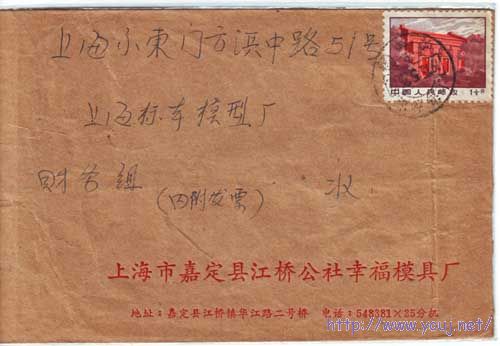 上海小东门方浜中路51号
中国人民邮政 1½分
上海标车模型厂
财务组
(内附发票)
收
上海市嘉定县江桥公社幸福模具厂
地址：嘉定县江桥镇华江路二号桥 电话：548381×25分机
http://www.youj.net/